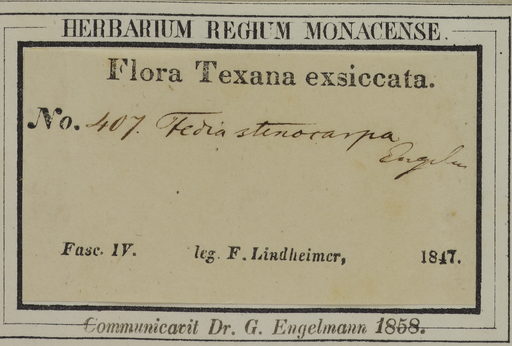 HERBARIUM REGIUM MONACENSE.
Flora Texana exsiccata.
No. 407. Fedia stenocarpa
Engelm
Fasc. IV. leg. F. Lindheimer, 1847.
Communicavit Dr. G. Engelmann 1858.